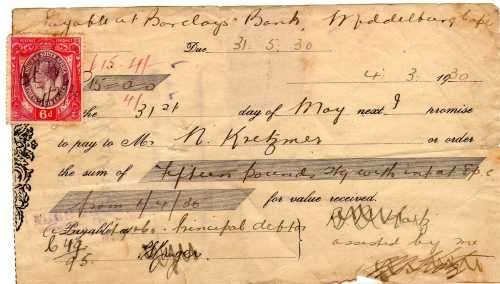 Payable at Barclays Bank, Middelburg Cape
Due 31. 5. 30
£15-4/-
4. 3. 1930
15-0-0
4/-
the 31st day of May next I promise
to pay to Mr N. Kretzmer or order
the sum of fifteen pounds Stg with int at 8 p c
from 1/4/30 for value received.
6d
Principal debtor
assisted by me